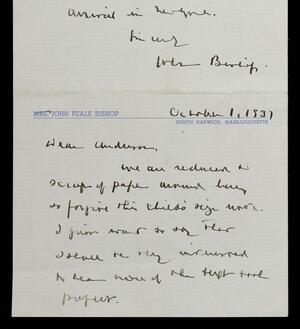 arrived in New York.
Sincerely
John Bishop.
MRS. JOHN PEALE BISHOP
October 1, 1937
SOUTH HARWICH, MASSACHUSETTS
Dear Anderson,
We are reduced to
scraps of paper around here,
so forgive this child's size note.
I just want to say that
I shall be very interested
to hear more of the text book
project.